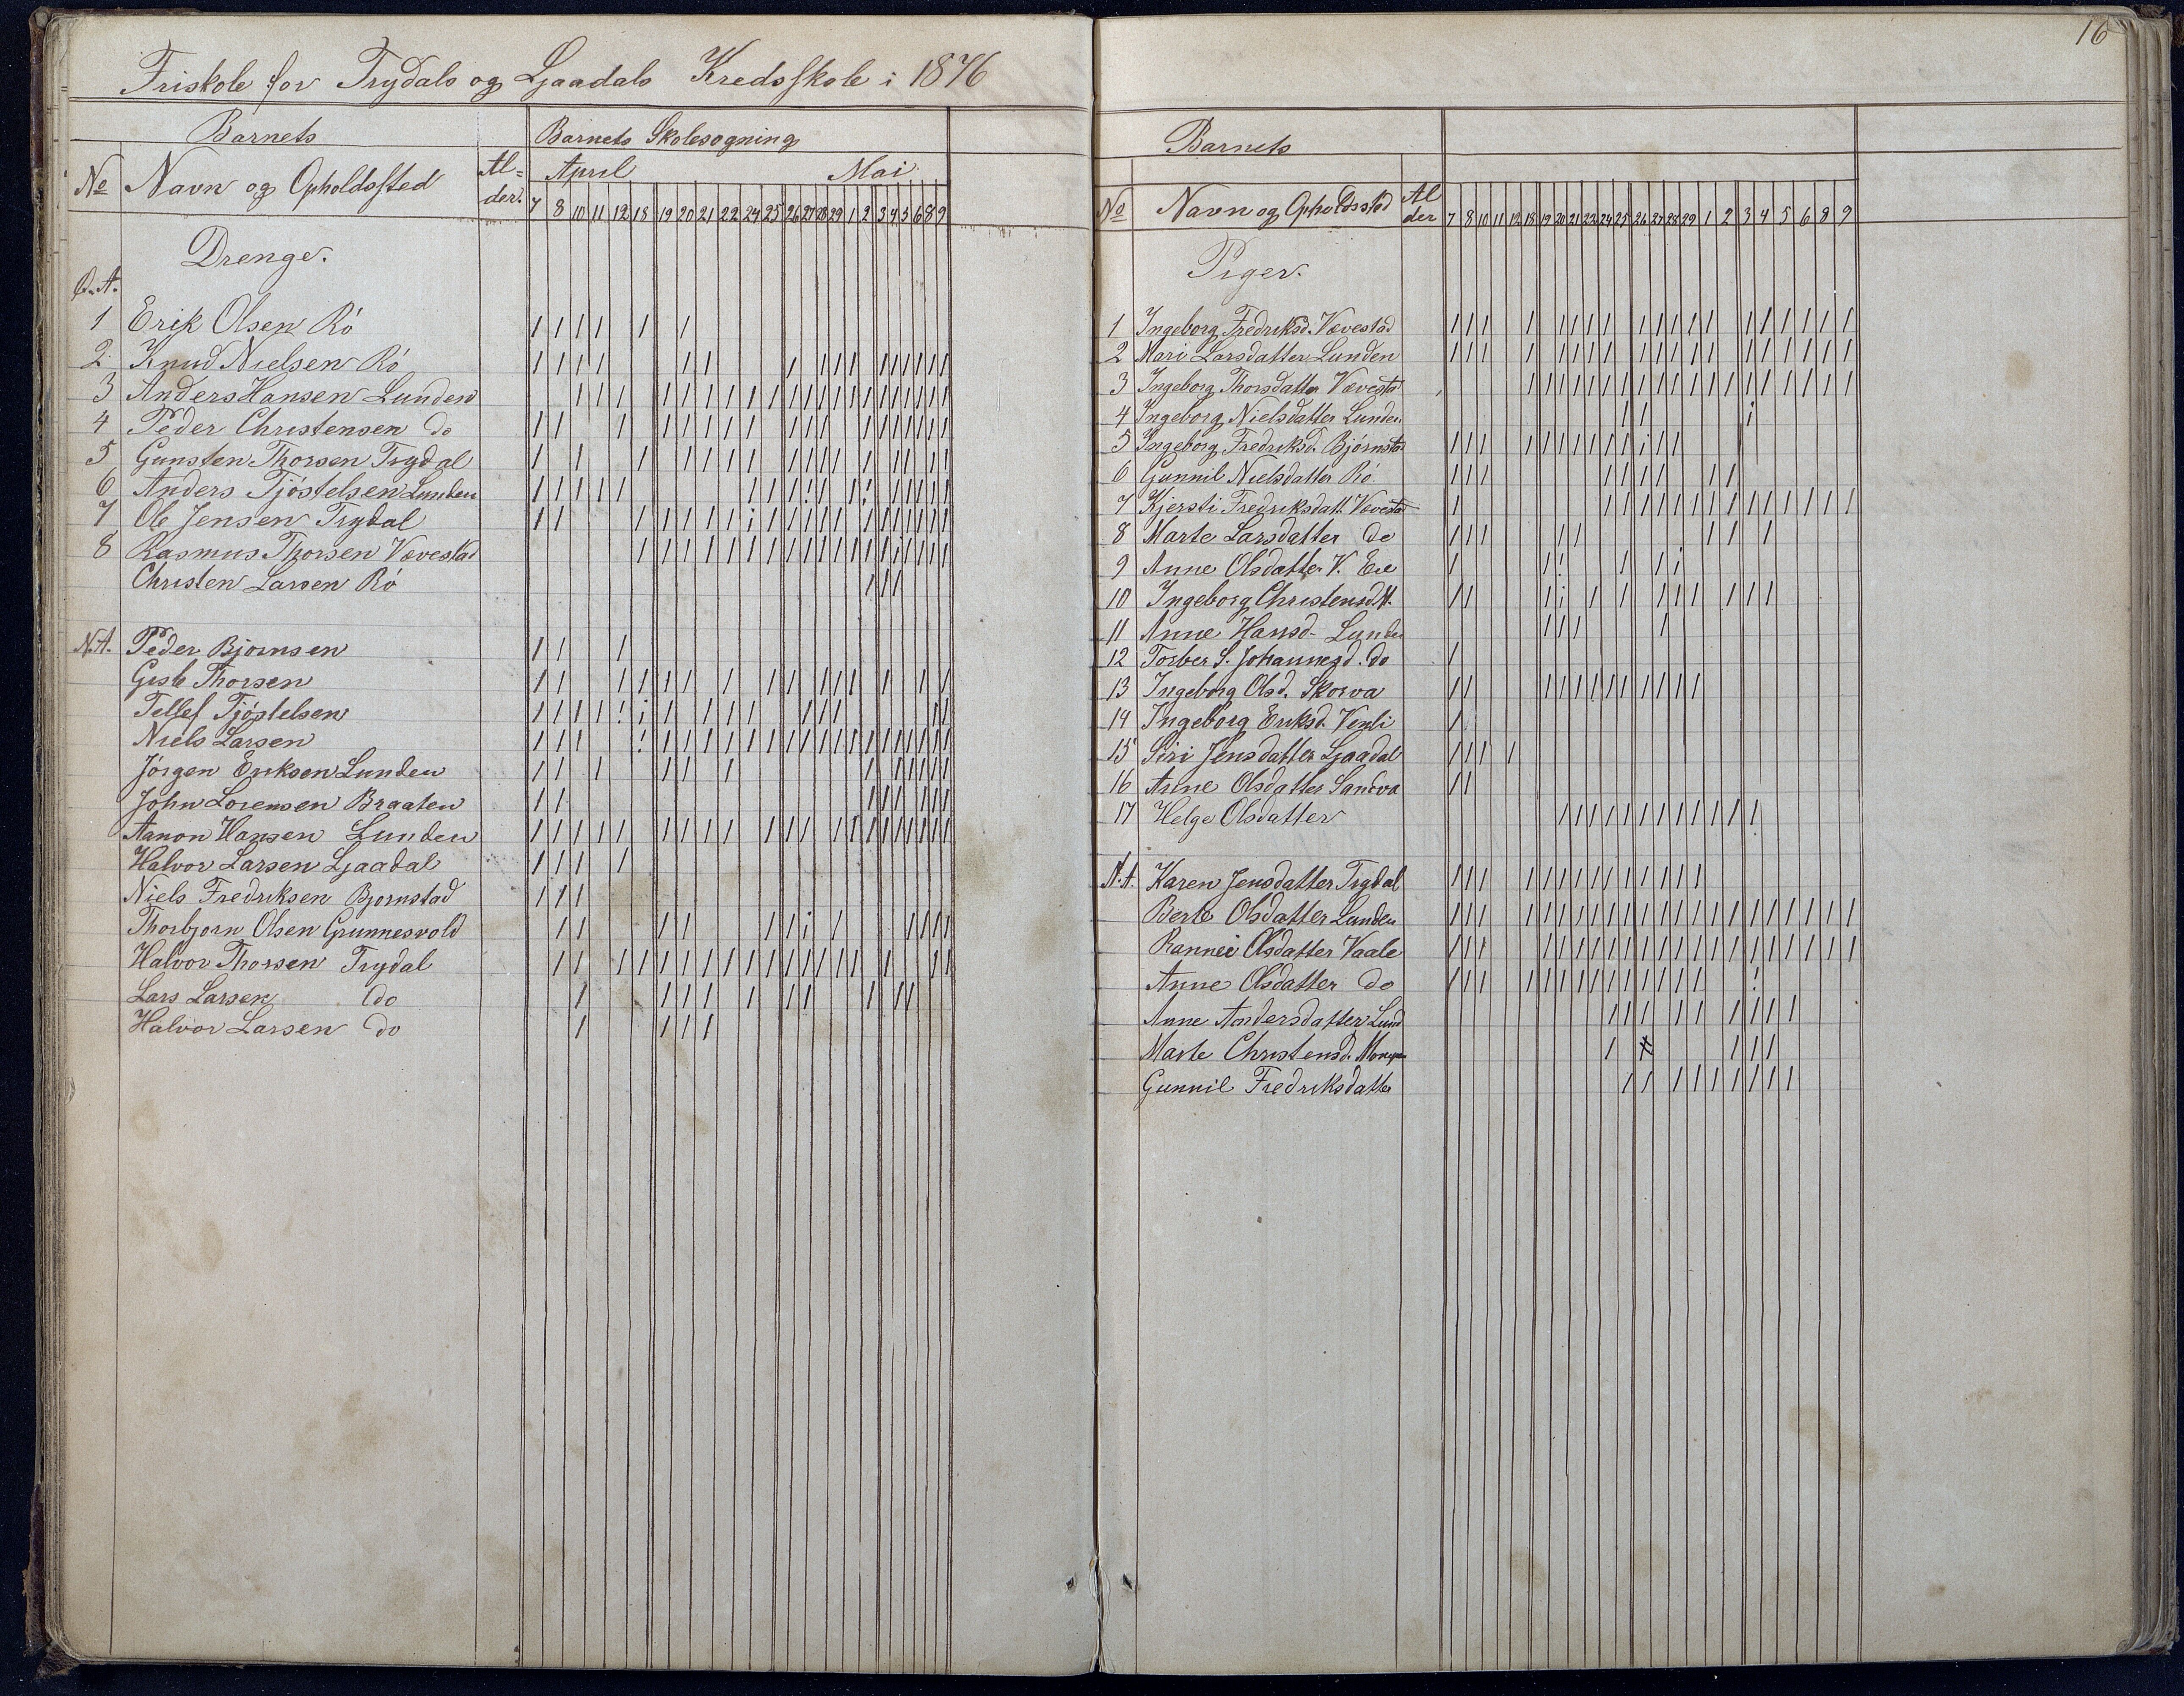 Friskole for Trydals og Ljaadals Kredsskole i 1876
Barnets
Barnets Skolesogning
No Navn og Opholdssted Al= der. April Mai
7 8 10 11 12 18 19 20 21 22 24 25 26 27 28 29 1 2 3 4 5 6 8 9
Drenge.
Ø.A.
1 Erik Olsen Rö
2 Knud Nielsen Rö
3 Anders Hansen Lunden
4 Peder Christensen do
5 Gunsten Thorsen Trydal
6 Anders Tjöstelsen Lunden
7 Ole Jensen Trydal
8 Rasmus Thorsen Vævestad
Christen Larsen Rö
N.A. Peder Bjornsen
Gisle Thorsen
Tellef Tjöstelsen
Niels Larsen
Jörgen Eriksen Lunden
John Lorensen Braaten
Aanon Hansen Lunden
Halvor Larsen Ljaadal
Niels Fredriksen Bjornstad
Thorbjorn Olsen Grunnesvold
Halvor Thorsen Trydal
Lars Larsen do
Halvor Larsen do
16
Barnets
No Navn og Opholdssted Al der 7 8 10 11 12 18 19 20 21 22 24 25 26 27 28 29 1 2 3 4 5 6 8 9
Piger.
1 Ingeborg Fredriksd. Vævestad
2 Mari Larsdatter Lunden
3 Ingeborg Thorsdatter Vævestad
4 Ingeborg Nielsdatter Lunden
5 Ingeborg Fredriksd. Bjórnstad
6 Gunnil Nielsdatter Rö.
7 Kjersti Fredriksdatt. Vævestad
8 Marte Larsdatter do
9 Anne Olsdatter V. Eie
10 Ingeborg Christensdtt.
11 Anne Hansd. Lunden
12 Torber S. Johannesd. do
13 Ingeborg Olsd. Skorva
14 Ingeborg Eriksd. Venli
15 Siri Jensdatter Ljaadal
16 Anne Olsdatter Sandva
17 Helge Olsdatter
N.A. Karen Jensdatter Trydal
Berte Olsdatter Lunden
Rannei Olsdatter Vaale
Anne Olsdatter do
Anne Andersdatter Lund
Marte Christensd.
Gunnil Fredriksdatter